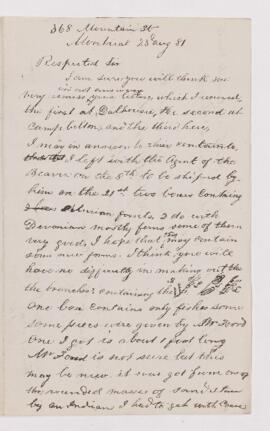 368 Mountain St
Montreal 23 Aug 81
Respected Sir
I am sure you will think me
very remiss in not answering your letters, which I received
the first at Dalhousie, the second at
Campbellton, and the third here,
I may in answer to
I left with the Agent of the
Beaver on the 8th to be shipped by
him on the 21st two boxes containing
fossils, 2 do with
Devonian mostly ferns some of them
very good, I hope that may contain
some new forms. I think you will
have no difficulty in making out the
the branches containing the
One box contains only fishes some
some pieces were given by Mr Foord
One I got is about 1 foot long
Mr Foord is not sure but this
may be new. it was got from one of
the rounded masses of
by an Indian I had to